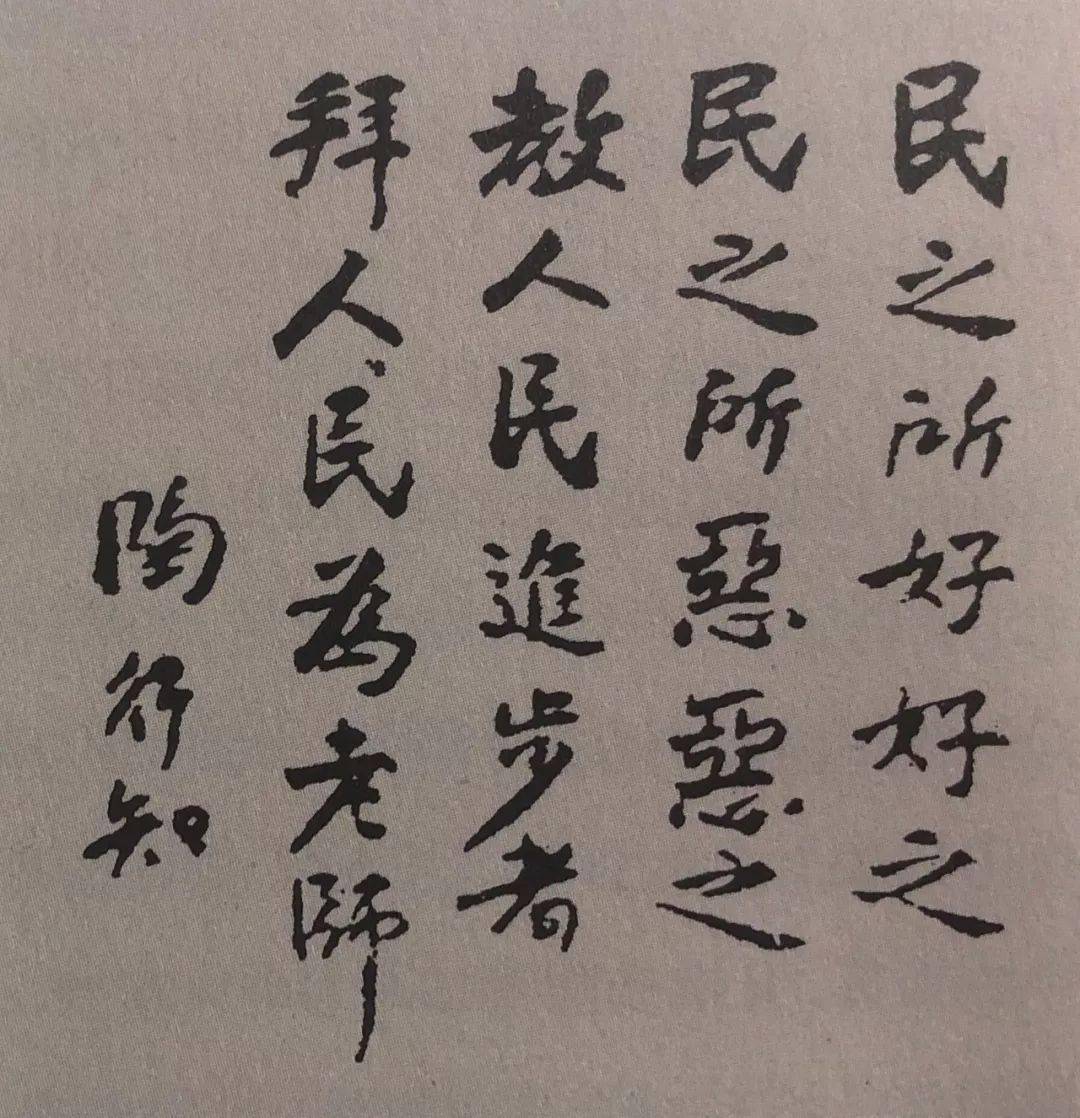 民之所好好之
民之所惡惡之
教人民進步者
拜人民為老師
陶行知